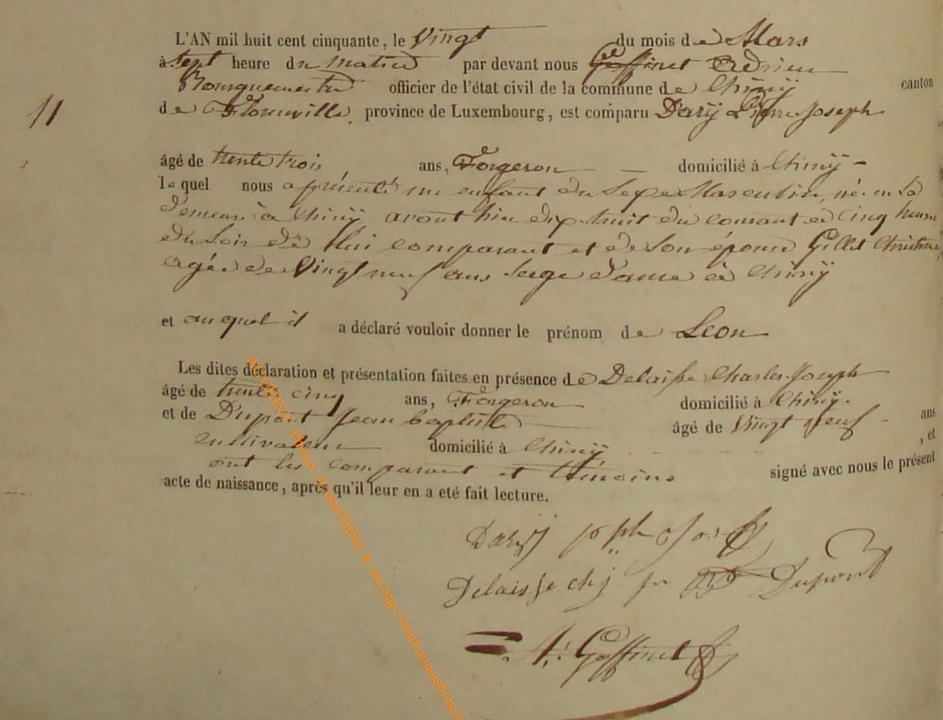 L'AN mil huit cent cinquante, le Vingt du mois de Mars
à sept heure du matin par devant nous Goffinet Adrien
Bourguemestre officier de l'état civil de la commune de Chiny canton
de Florenville, province de Luxembourg, est comparu Darÿ Joseph
11
âgé de trente trois ans, Forgeron domicilié à Chinÿ
le quel nous a présenté un enfant du Sexe Masculin, né en Sa
demeure à Chinÿ avant hier dix huit du courant à Cinq heures
du Soir de lui comparant et de Son épouse Gillet Christine
agée de Vingt neuf ans à Chinÿ
et auquel il a déclaré vouloir donner le prénom de Leon
Les dites déclaration et présentation faites en présence de Delaisse Charles Joseph
âgé de trente cinq ans, Forgeron domicilié à Chiny.
et de Dupont Jean baptiste âgé de Vingt neuf ans
cultivateur domicilié à Chinÿ , et
ont les comparant et témoins signé avec nous le présent
acte de naissance, après qu'il leur en a eté fait lecture.
Darÿ
Delaisse chj Dupont
A. Goffinet